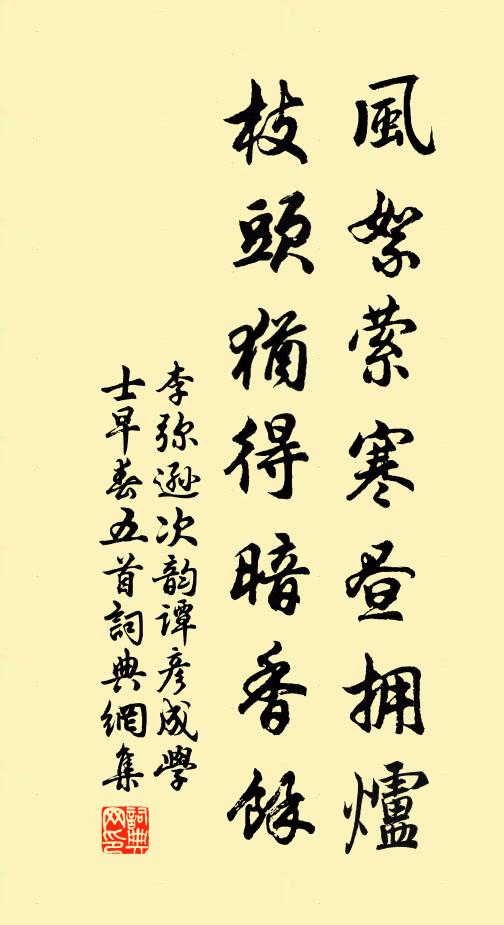 風絮縈寒昼拥爐
枝頭猶得暗香餘
李弥遜次韵谭彦成學
士早春五首詞典網集
詞典
网印